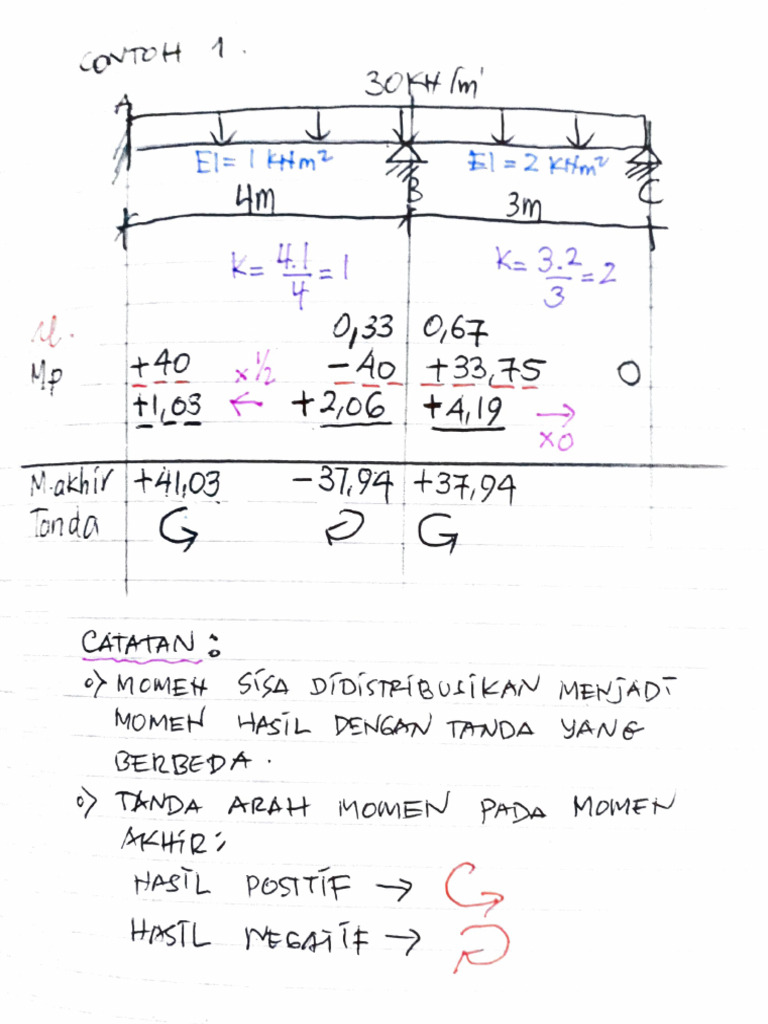 CONTOH 1.
30 KN/m'
A
EI = 1 KNm²
EI = 2 KNm²
B
C
4m
3m
K = 4.1/4 = 1
K = 3.2/3 = 2
0,33 0,67
Mp +40 x½ -40 +33,75 0
+1,03 ← +2,06 +4,19 →
x0
M.akhir +41,03 -37,94 +37,94
Tanda
CATATAN :
o) MOMEN SISA DIDISTRIBUSIKAN MENJADI
MOMEN HASIL DENGAN TANDA YANG
BERBEDA.
o) TANDA ARAH MOMEN PADA MOMEN
AKHIR :
HASIL POSITIF →
HASIL NEGATIF →